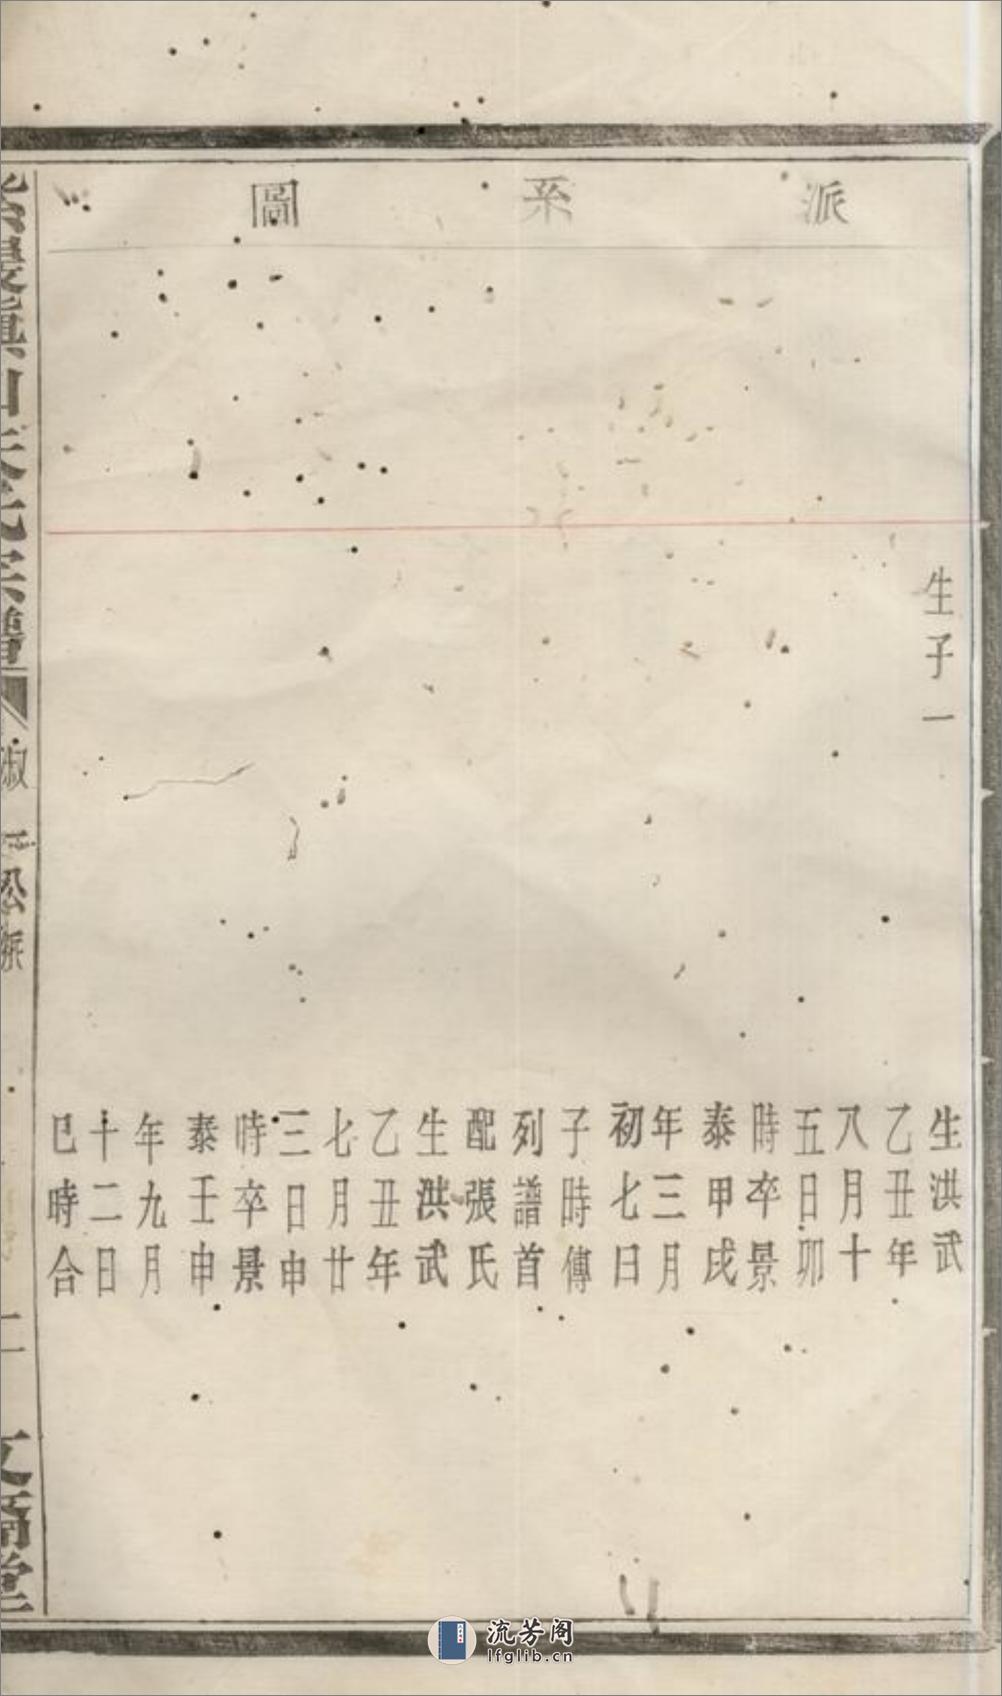 派系圖
生子一
生洪武
乙丑年
八月十
五日卯
時卒景
泰甲戌
年三月
初七日
子時傳
列譜首
配張氏
生洪武
乙丑年
七月廿
三日申
時卒景
泰壬申
年九月
十二日
巳時合
二
流芳阁
lfglib.cn